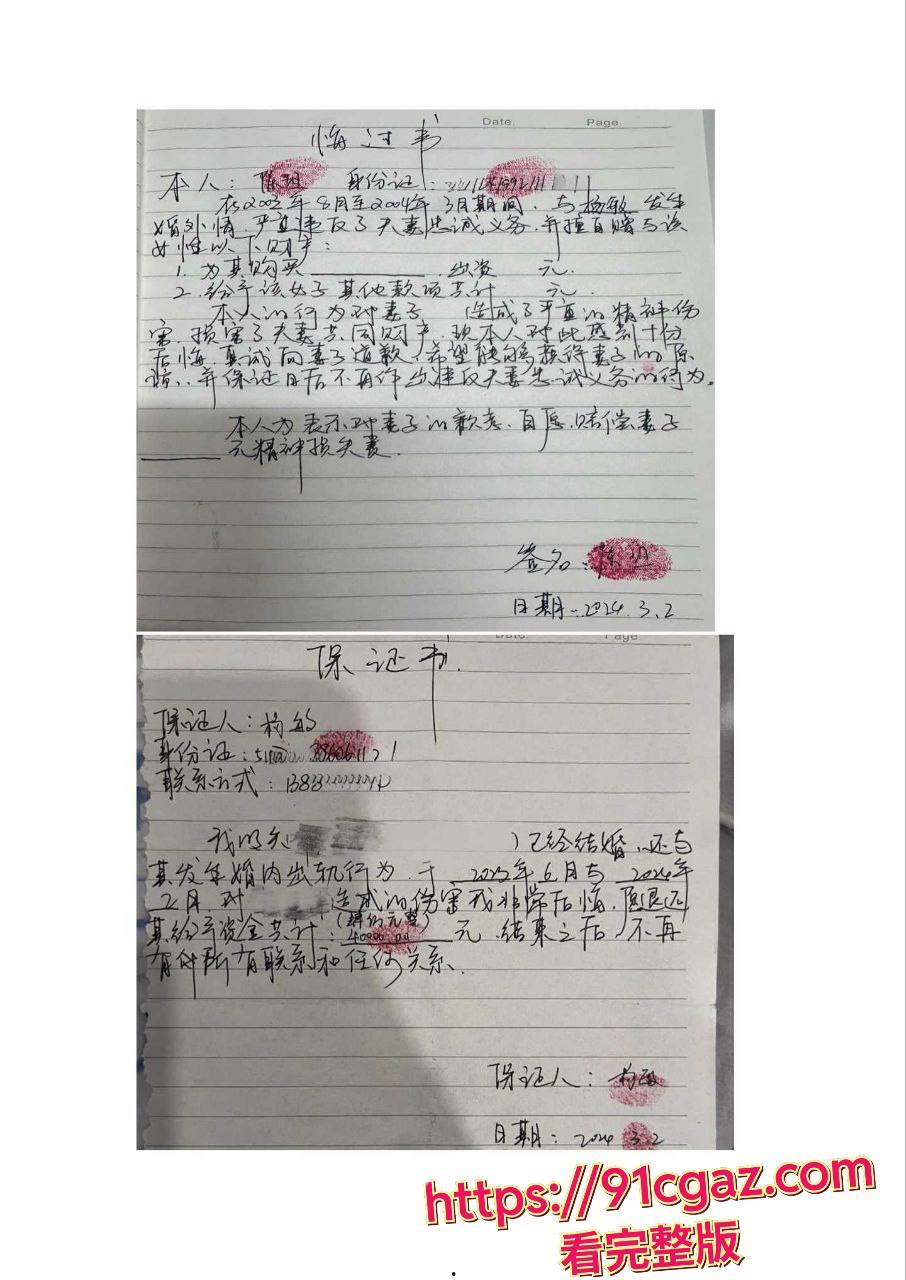 Date. Page.
悔过书
本人: 陈 身份证:
在2023年8月至2024年3月期间,与杨敏发生
婚外情,严重违反了夫妻忠诚义务,并擅自赠与该
女性以下财产:
1.为其购买 出资 元.
2.给予该女子其他款项共计 元.
本人的行为对妻子 造成了严重的精神伤
害,损害了夫妻共同财产,现本人对此感到十分
后悔,真诚向妻子道歉,希望能够获得妻子的原
谅,并保证日后不再作出违反夫妻忠诚义务的行为。
本人为表示对妻子的歉意,自愿赔偿妻子
元精神损失费.
签名:陈
日期:2024.3.2
Date Page
保证书.
保证人:杨敏
身份证:
联系方式:
我明知 )已经结婚,还与
其发生婚内出轨行为,于 2023年6月与2024年
2月对 造成的伤害我非常后悔,愿退还
其给予资金共计: 40000.00 元,结束之后,不再
有任何联系和任何关系.
保证人:杨敏
日期: 2024 3.2
https://91cgaz.com
看完整版